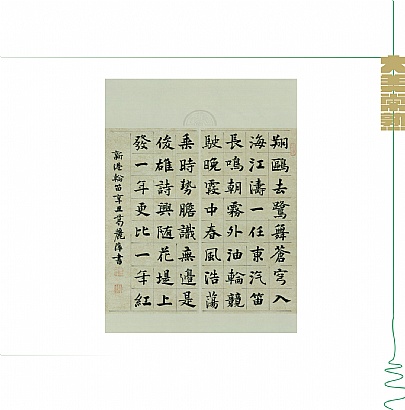 大美常熟
翔鷗去鷺舞蒼穹入
海江濤一任東汽笛
長鳴朝霧外油輪競
駛晚霞中春風浩蕩
乘時勢膽識無邊是
俊雄詩興随花堤上
發一年更比一年紅
新港船笛辛丑葛麗萍書